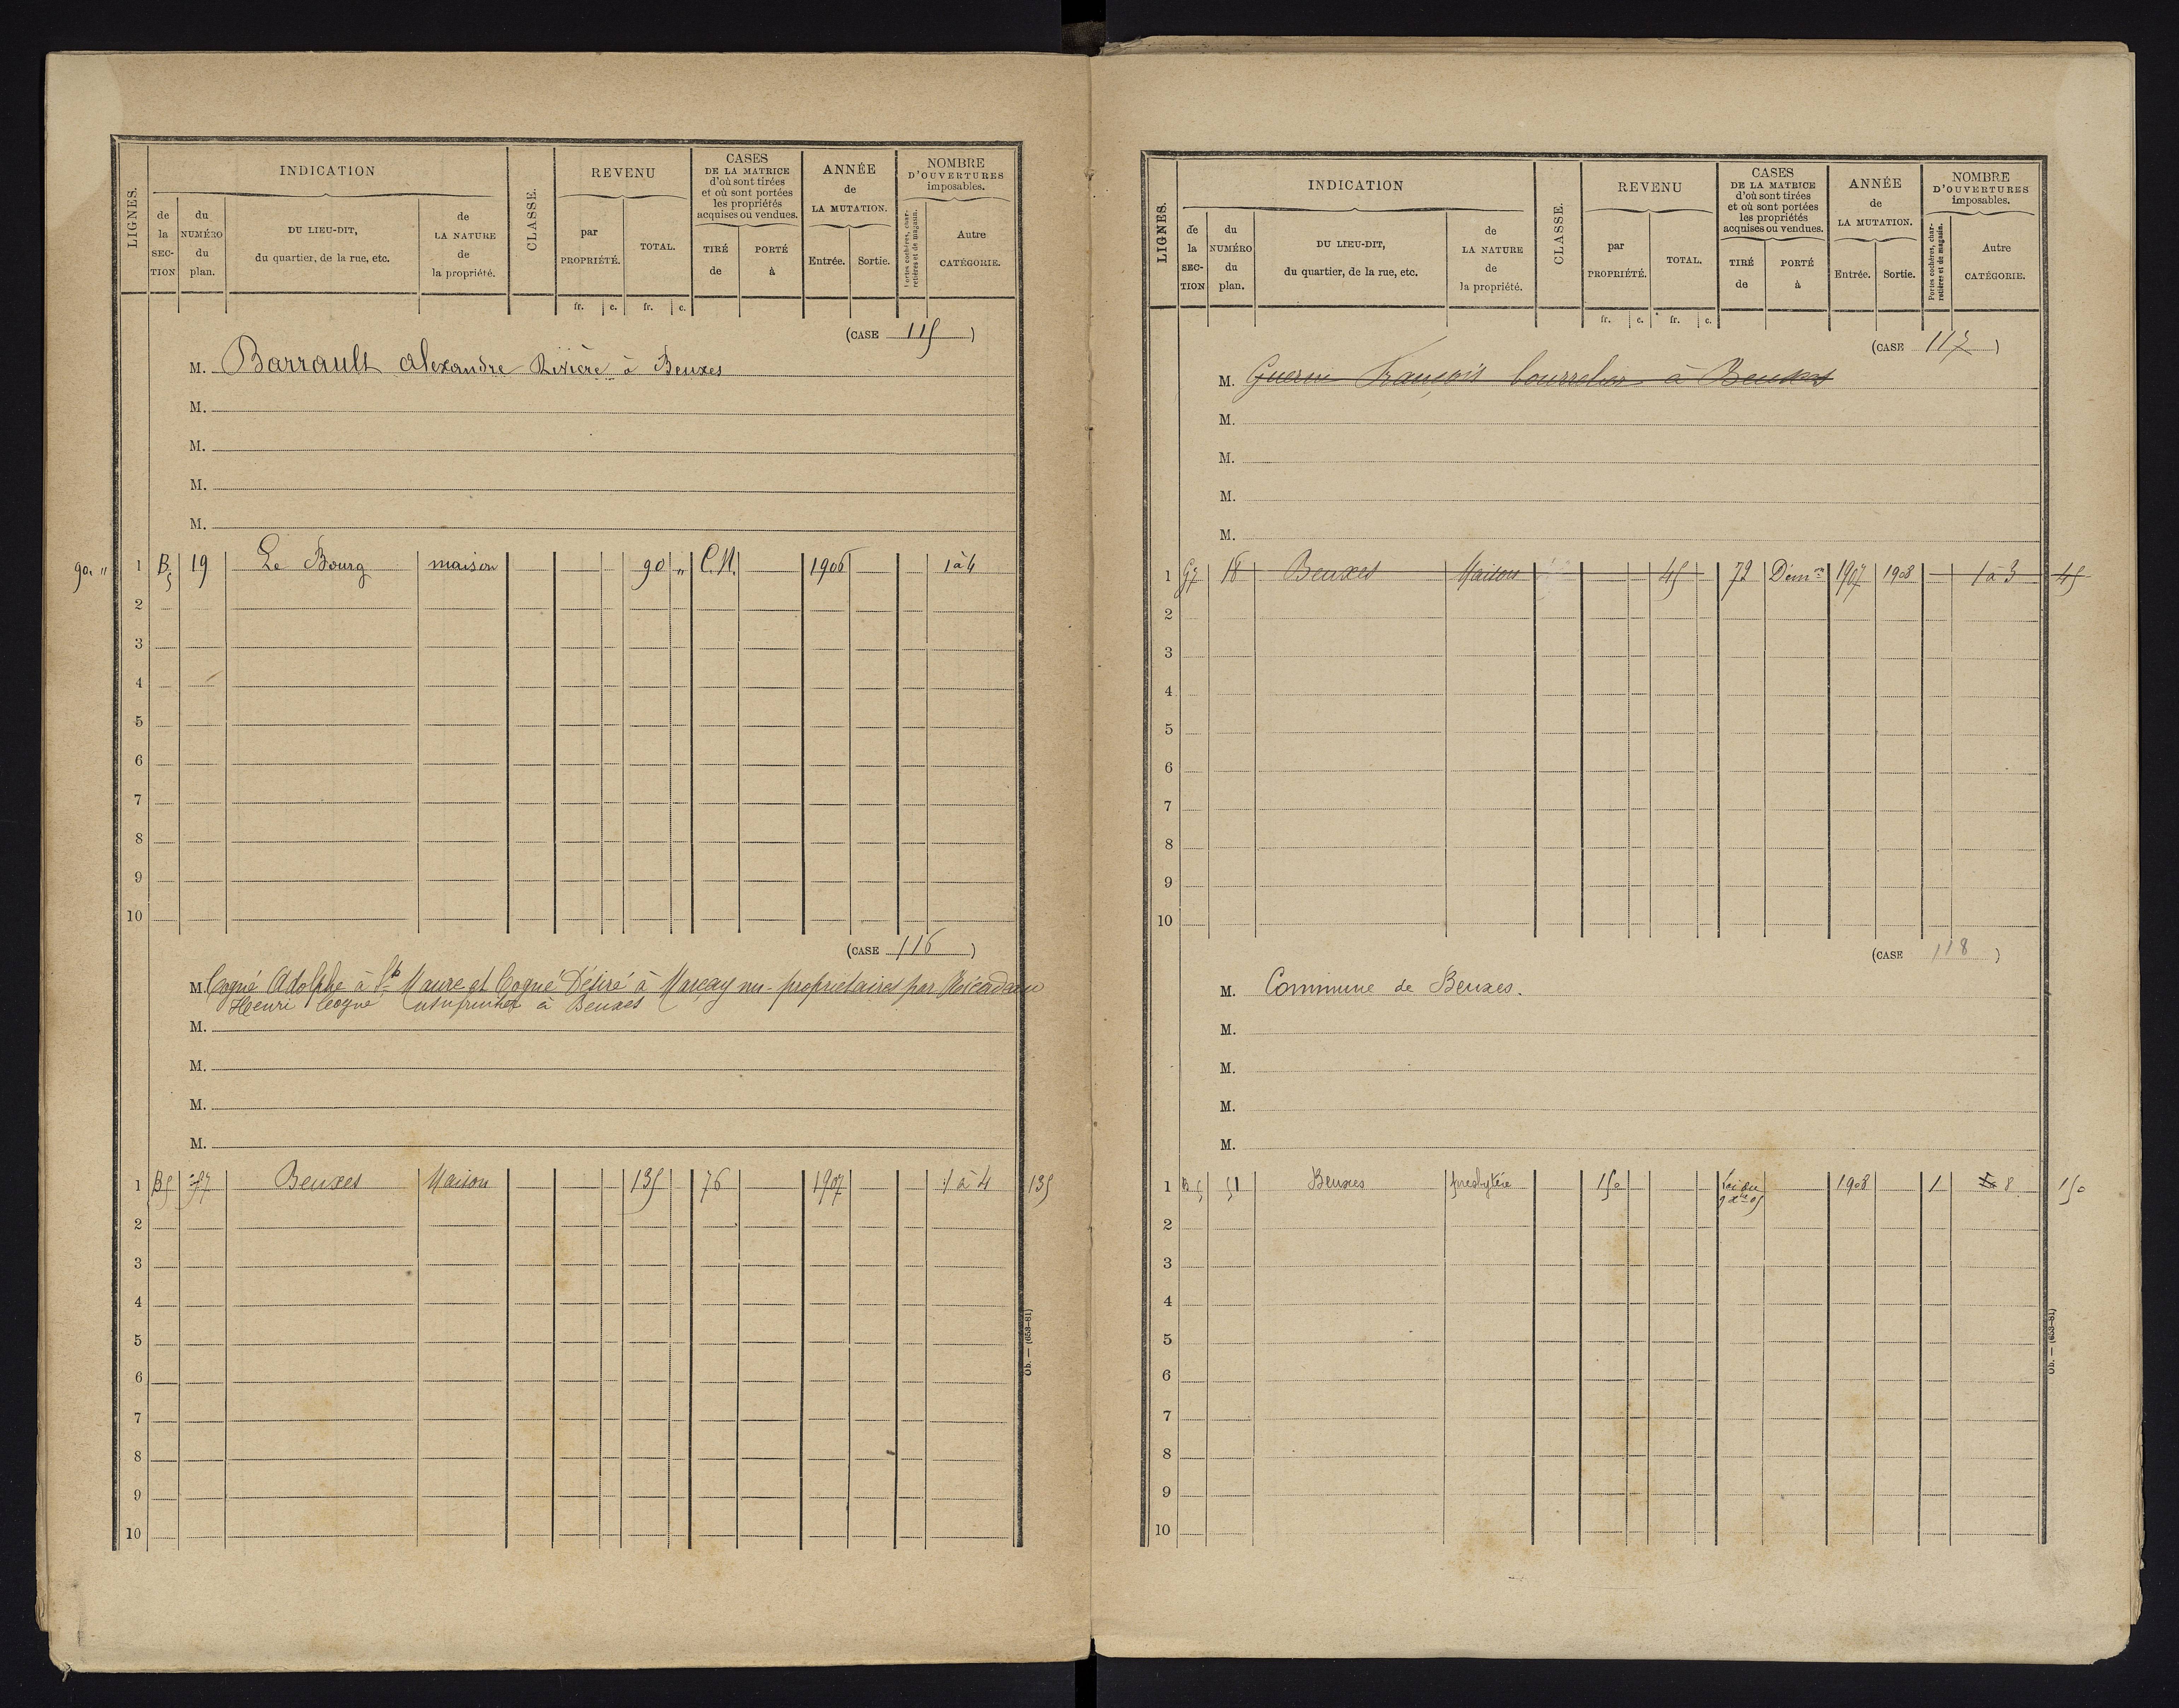 LIGNES.
INDICATION
de la SECTION
du NUMÉRO du plan.
DU LIEU-DIT, du quartier, de la rue, etc.
de LA NATURE de la propriété.
CLASSE.
REVENU
par PROPRIÉTÉ.
TOTAL.
CASES DE LA MATRICE d'où sont tirées et où sont portées les propriétés acquises ou vendues.
TIRÉ de
PORTÉ à
ANNÉE de LA MUTATION.
Entrée.
Sortie.
NOMBRE D'OUVERTURES imposables.
Portes cochères, charretières et de magasin.
Autre CATÉGORIE.
fr. c. fr. c.
(CASE 115)
M. Barrault Alexandre Rivière à Beuxes
M.
M.
M.
M.
90 " 1 B5 19 Le Bourg maison 90 " C.N. 1906 1 à 4
2
3
4
5
6
7
8
9
10
(CASE 116)
M. Cogné Adolphe à Ste Maure et Cogné Désiré à Marçay nu-propriétaires par
Henri Cogné usufruitier à Beuxes
M.
M.
M.
M.
1 B5 Beuxes Maison 135 76 1907 1 à 4 135
2
3
4
5
6
7
8
9
10
Ob. — (653-81)
LIGNES.
INDICATION
de la SECTION
du NUMÉRO du plan.
DU LIEU-DIT, du quartier, de la rue, etc.
de LA NATURE de la propriété.
CLASSE.
REVENU
par PROPRIÉTÉ.
TOTAL.
CASES DE LA MATRICE d'où sont tirées et où sont portées les propriétés acquises ou vendues.
TIRÉ de
PORTÉ à
ANNÉE de LA MUTATION.
Entrée.
Sortie.
NOMBRE D'OUVERTURES imposables.
Portes cochères, charretières et de magasin.
Autre CATÉGORIE.
fr. c. fr. c.
(CASE 117)
M. Guerin François bourrelier à Beuxes
M.
M.
M.
M.
1 G7 18 Beuxes Maison 45 72 Démon 1907 1908 1 à 3 45
2
3
4
5
6
7
8
9
10
(CASE 118)
M. Commune de Beuxes.
M.
M.
M.
M.
1 B5 51 Beuxes presbytère 150 Loi du 9 Xbre 05 1908 1 8 150
2
3
4
5
6
7
8
9
10
Ob. — (653-81)